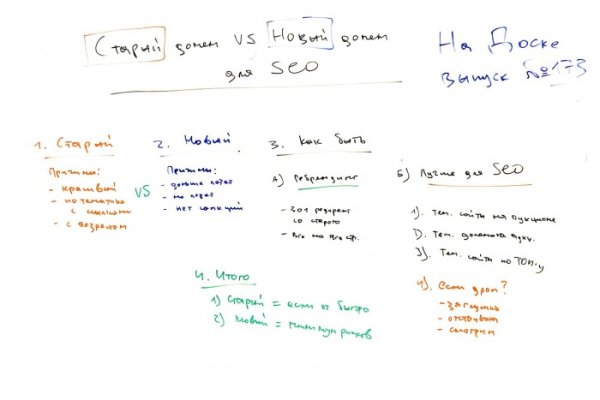 Старый домен VS Новый домен
для SEO
На Доске
выпуск №173
1. Старый
Причины:
- красивый
- по тематике
с ссылками
- с возрастом
VS
2. Новый
Причины:
- дольше
- не
- нет санкций
3. Как быть
А) Ребрендинг
- 301 редирект
со старого
- Все на все стр.
Б) Лучше для SEO
1). Тем. сайты на аукционе
2). Тем. домены аукц.
3). Тем. сайты по ТОП-у
4). если дроп?
- загрузка
- отстоявш
- смотрим
4. Итого
1) Старый = если оч быстро
2) Новый = минимум рисков